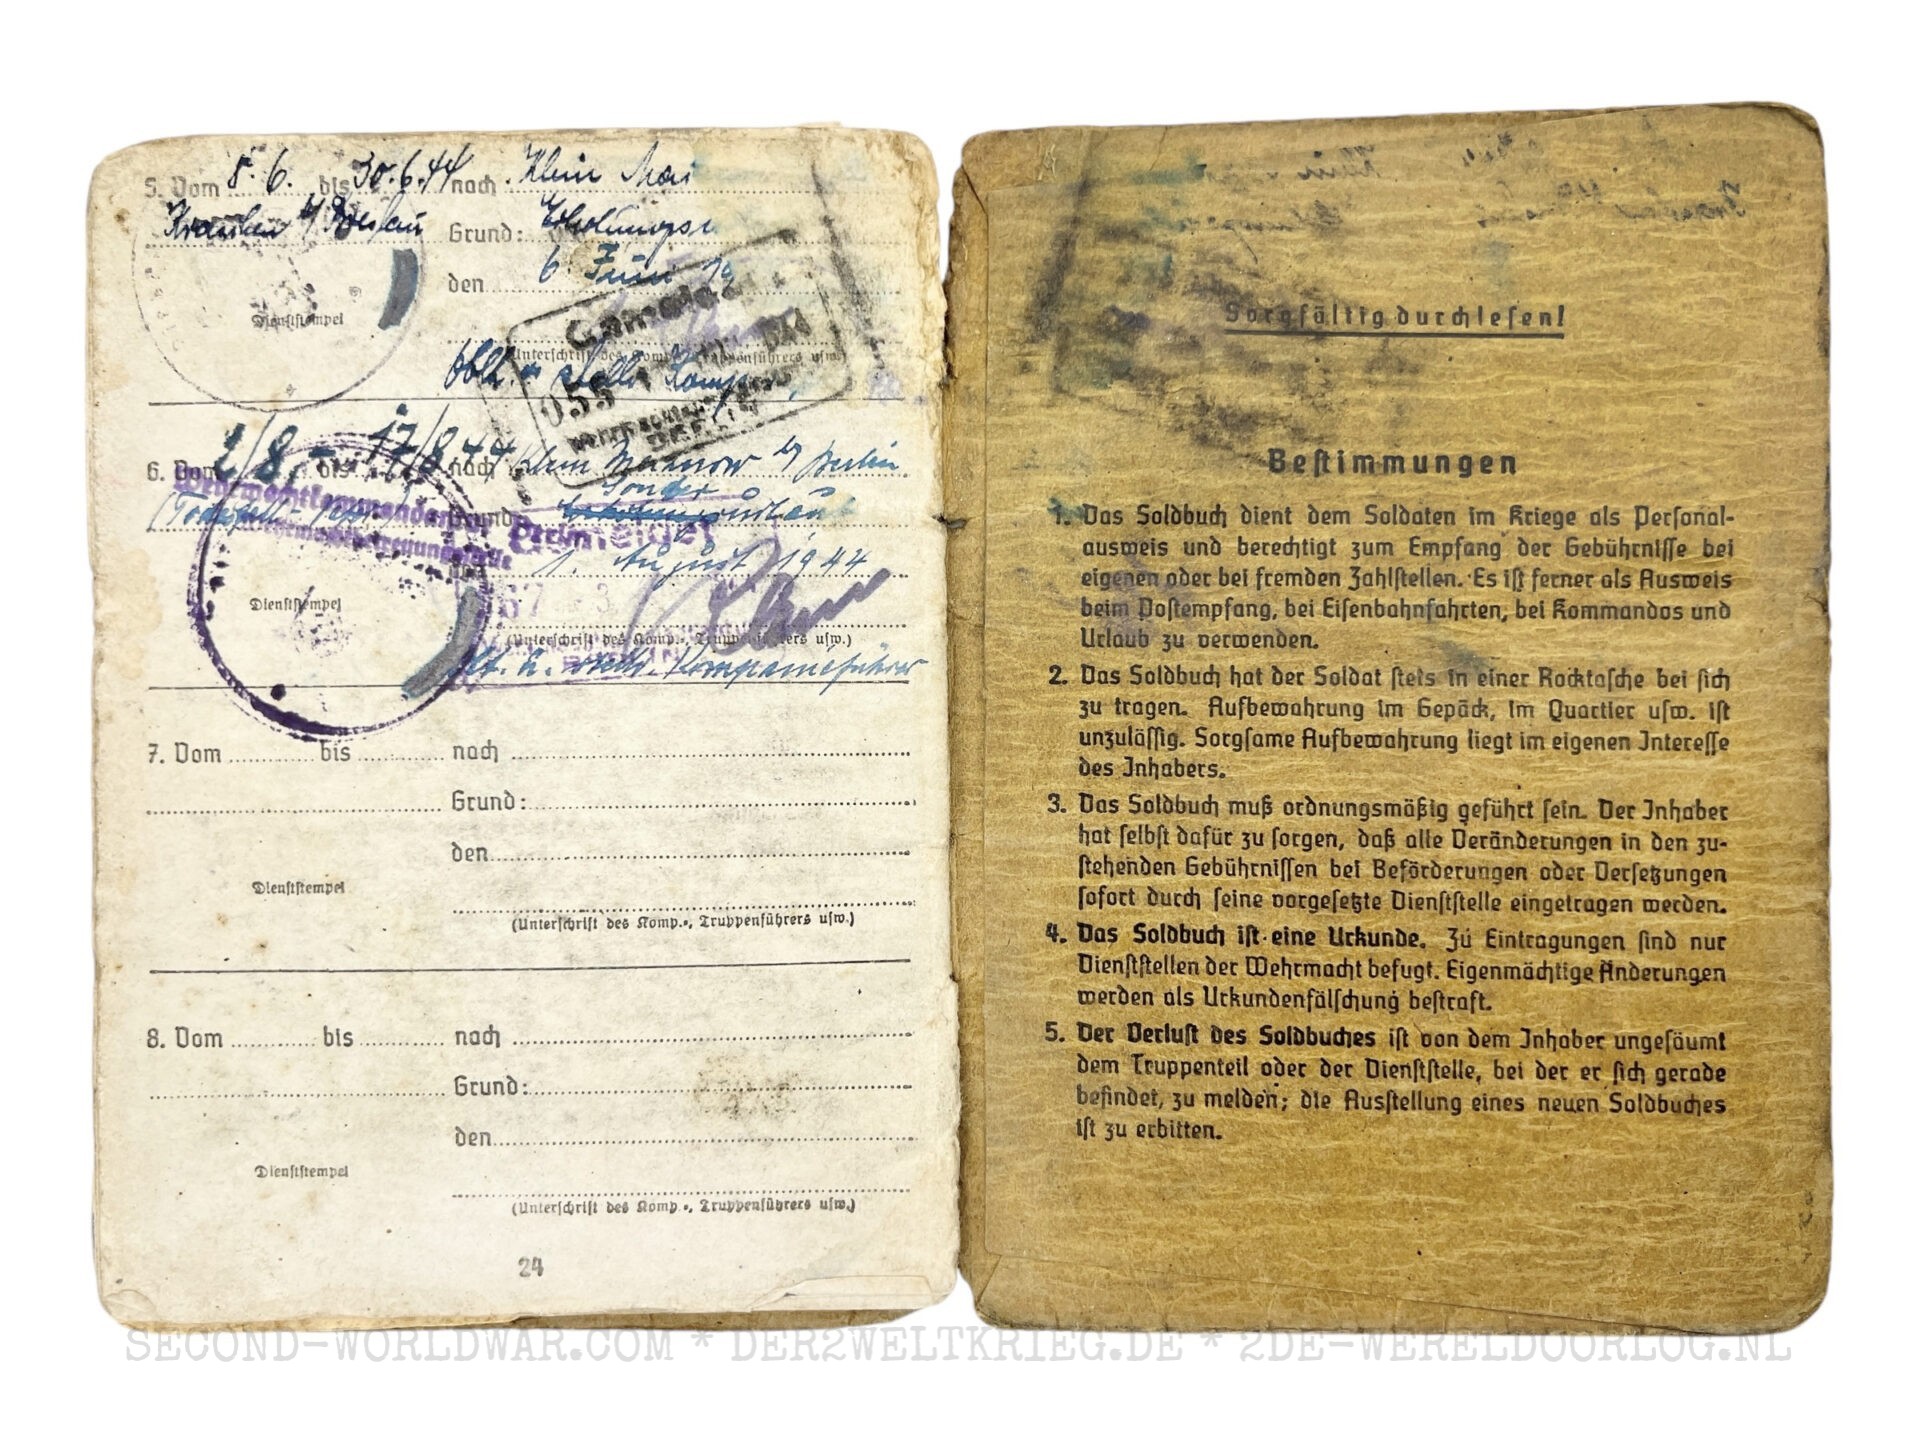 5. Vom 8.6. bis 30.6.44 nach Klein
Grund:
den 6. Juni 19
Dienststempel
Unterschrift des Komp., Truppenführers usw.
055
6. Vom 2/8. - bis 17/8 44 nach Klein b/ Berlin
Sonder
Grund: urlaub
Gemeldet
1. August 1944
Dienststempel
(Unterschrift des Komp., Truppenführers usw.)
Lt. u. Kompanieführer
7. Vom bis nach
Grund:
den
Dienststempel
(Unterschrift des Komp., Truppenführers usw.)
8. Vom bis nach
Grund:
den
Dienststempel
(Unterschrift des Komp., Truppenführers usw.)
24
Sorgfältig durchlesen!
Bestimmungen
1. Das Soldbuch dient dem Soldaten im Kriege als Personal-
ausweis und berechtigt zum Empfang der Gebührnisse bei
eigenen oder bei fremden Zahlstellen. Es ist ferner als Ausweis
beim Postempfang, bei Eisenbahnfahrten, bei Kommandos und
Urlaub zu verwenden.
2. Das Soldbuch hat der Soldat stets in einer Rocktasche bei sich
zu tragen. Aufbewahrung im Gepäck, im Quartier usw. ist
unzulässig. Sorgsame Aufbewahrung liegt im eigenen Interesse
des Inhabers.
3. Das Soldbuch muß ordnungsmäßig geführt sein. Der Inhaber
hat selbst dafür zu sorgen, daß alle Veränderungen in den zu-
stehenden Gebührnissen bei Beförderungen oder Versetzungen
sofort durch seine vorgesetzte Dienststelle eingetragen werden.
4. Das Soldbuch ist eine Urkunde. Zu Eintragungen sind nur
Dienststellen der Wehrmacht befugt. Eigenmächtige Änderungen
werden als Urkundenfälschung bestraft.
5. Der Verlust des Soldbuches ist von dem Inhaber ungesäumt
dem Truppenteil oder der Dienststelle, bei der er sich gerade
befindet, zu melden; die Ausstellung eines neuen Soldbuches
ist zu erbitten.
SECOND-WORLDWAR.COM * DER2WELTKRIEG.DE * 2DE-WERELDOORLOG.NL